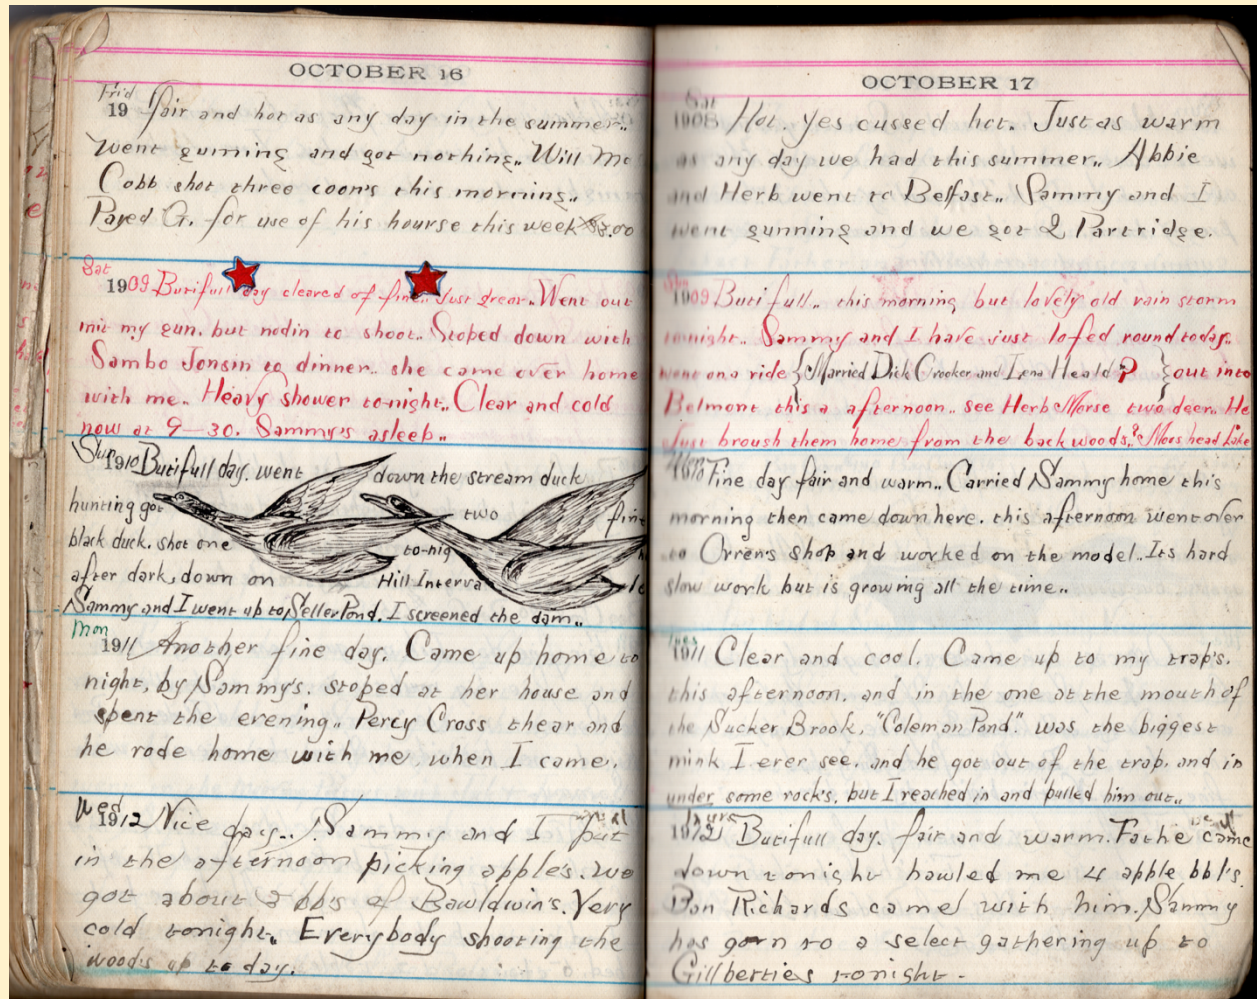 OCTOBER 16
Frid
19 fair and hot as any day in the summer..
Went gunning and got nothing.. Will Mc
Cobb shot three coon's this morning..
Payed G. for use of his hourse this week $3.00
Sat
1909 Butifull day cleared of fine.. Just grear.. Went out
mit my gun. but nodin to shoot.. Stoped down with
Sambo Jonsin to dinner.. she came over home
with me.. Heavy shower to-night.. Clear and cold
now at 9-30. Sammy's asleep..
Sun
1910 Butifull day. went down the stream duck
hunting got two fine
black duck. shot one to-nig
after dark, down on Hill Interva
Sammy and I went up to Seller Pond. I screened the dam..
Mon
1911 Another fine day. Came up home to
night, by Sammy's. stoped at her house and
spent the evening.. Percy Cross thear and
he rode home with me, when I came.
Wed
1912 Nice day.. Sammy and I put
in the afternoon picking apple's. we
got about 3 bb's of Bawldwin's. Very
cold tonight.. Everybody shooting the
wood's up to day.
OCTOBER 17
Sat
1908 Hot. Yes cussed hot. Just as warm
as any day we had this summer.. Abbie
and Herb went to Belfast.. Sammy and I
went gunning and we got 2 Partridge.
1909 Butifull.. this morning but lovely old rain storm
tonight.. Sammy and I have just lofed round today..
went on a ride {Married Dick Crocker and Lena Heald ?} out into
Belmont this a afternoon.. see Herb Morse two deer.. He
Just broush them home from the back woods.. Moos head Lake
1910 Fine day fair and warm.. Carried Sammy home this
morning then came down here. this afternoon went over
to Orren's shop and worked on the model.. Its hard
slow work but is growing all the time..
1911 Clear and cool. Came up to my trap's.
this afternoon. and in the one at the mouth of
the Sucker Brook, "Coleman Pond". was the biggest
mink I erer see. and he got out of the trap. and in
under some rock's. but I reached in and pulled him out..
Thurs
1912 Butifull day. fair and warm. Fathe came
down tonight hawled me 4 apple bbl's.
Ban Richards came with him. Sammy
has gorn to a select gathering up to
Gillberties tonight.